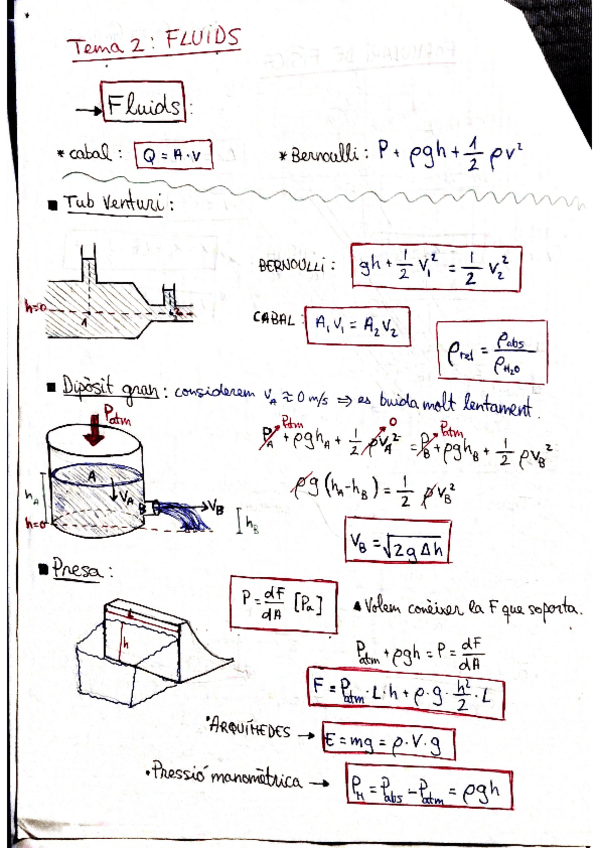 Tema 2: FLUIDS
→ Fluids:
* cabal: Q = A·v
* Bernoulli: P + ρgh + 1/2 ρv²
■ Tub Venturi:
h=0
1
2
BERNOULLI: gh + 1/2 V₁² = 1/2 V₂²
CABAL: A₁V₁ = A₂V₂
ρrel = ρabs/ρH₂O
■ Dipòsit gran: considerem V_A ≈ 0 m/s ⇒ es buida molt lentament.
Patm
A
V_A
B
V_B
h_A
h=0
h_B
Patm 0 Patm
P_A + ρgh_A + 1/2 ρV_A² = P_B + ρgh_B + 1/2 ρV_B²
ρg(h_A - h_B) = 1/2 ρV_B²
V_B = √2gΔh
■ Presa:
L
h
P = dF/dA [Pa]
▲ Volem conèixer la F que soporta.
Patm + ρgh = P = dF/dA
F = Patm·L·h + ρ·g·h²/2·L
• ARQUÍMEDES → E = mg = ρ·V·g
• Pressió manomètrica → P_M = Pabs - Patm = ρgh